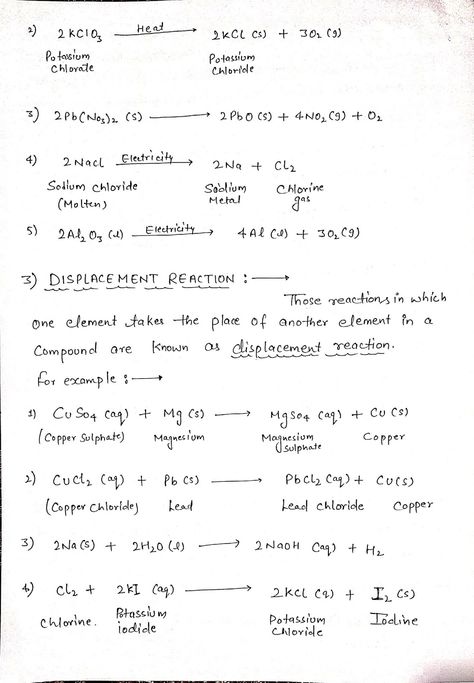 2) 2KClO3 —Heat→ 2KCl (s) + 3O2 (g)
Potassium Chlorate Potassium Chloride
3) 2Pb(No3)2 (s) → 2PbO (s) + 4NO2 (g) + O2
4) 2Nacl —Electricity→ 2Na + Cl2
Sodium chloride (Molten) Sodium Metal Chlorine gas
5) 2Al2O3 (l) —Electricity→ 4Al (l) + 3O2 (g)
3) DISPLACEMENT REACTION : →
Those reactions in which
one element takes the place of another element in a
compound are known as displacement reaction.
for example : →
1) CuSo4 (aq) + Mg (s) → MgSo4 (aq) + Cu (s)
(Copper Sulphate) Magnesium Magnesium sulphate Copper
2) CuCl2 (aq) + Pb (s) → PbCl2 (aq) + Cu(s)
(Copper Chloride) Lead Lead chloride Copper
3) 2Na(s) + 2H2O (l) → 2NaOH (aq) + H2
4) Cl2 + 2KI (aq) → 2KCl (q) + I2 (s)
Chlorine. Potassium iodide Potassium Chloride Iodine